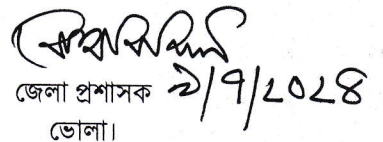 জেলা প্রশাসক ৯/৭/২০২৪
ভোলা।